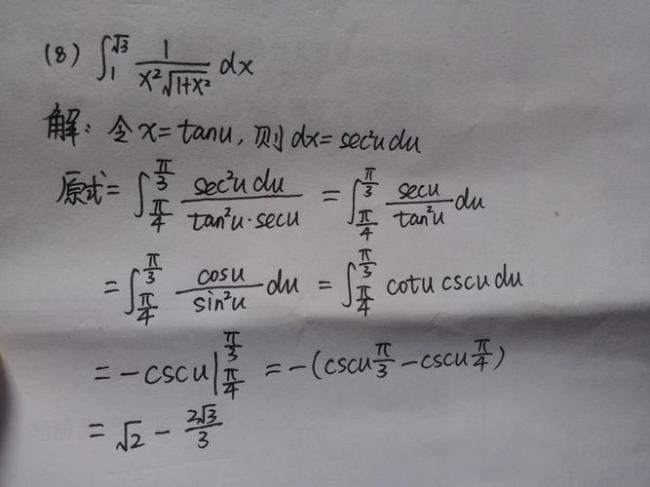 (8) ∫₁^√3 1/(x²√(1+x²)) dx
解: 令 x = tanu, 则 dx = sec²u du
原式 = ∫_{π/4}^{π/3} (sec²u du)/(tan²u·secu) = ∫_{π/4}^{π/3} secu/tan²u du
= ∫_{π/4}^{π/3} cosu/sin²u du = ∫_{π/4}^{π/3} cotu cscu du
= -cscu|_{π/4}^{π/3} = -(cscu π/3 - cscu π/4)
= √2 - 2√3/3